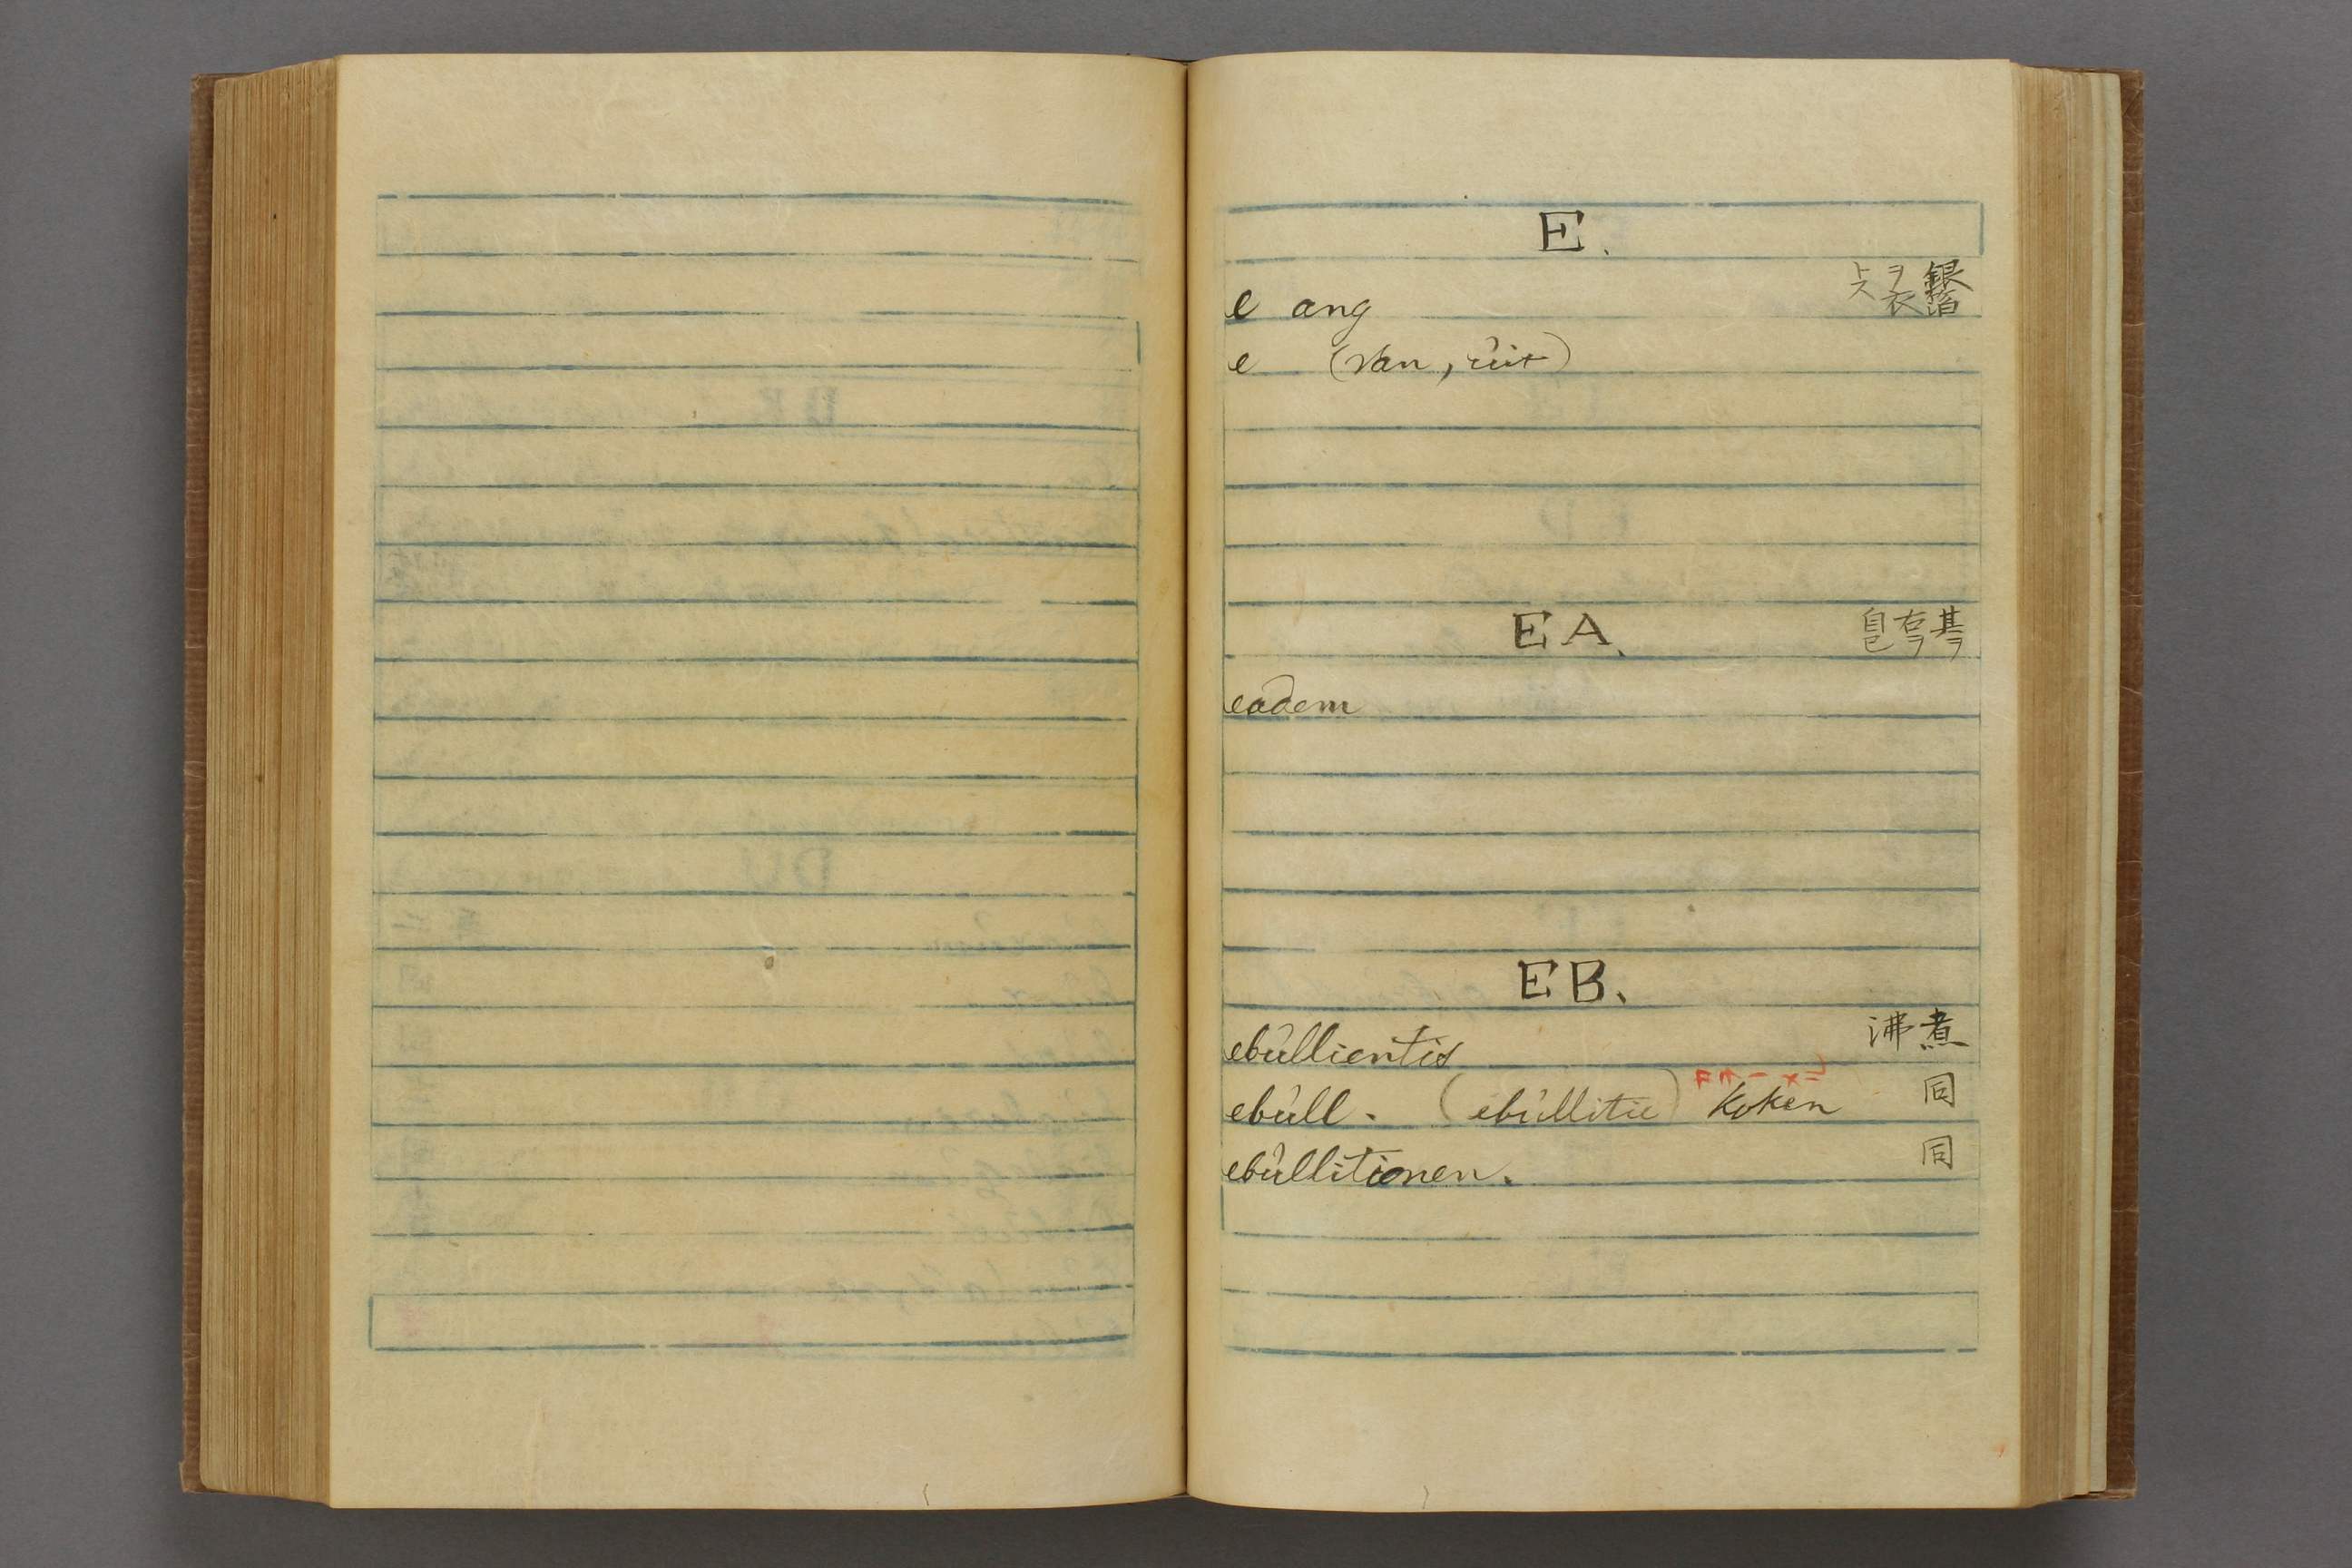 E.
e ang 銀箔
ヲ衣
e (van, ûit)
EA.
其ヲ
右ヲ
自己
eadem
EB.
ebûllientis 煮沸
ebûll. (ebûllitie) koken 同
ebûllitionen. 同